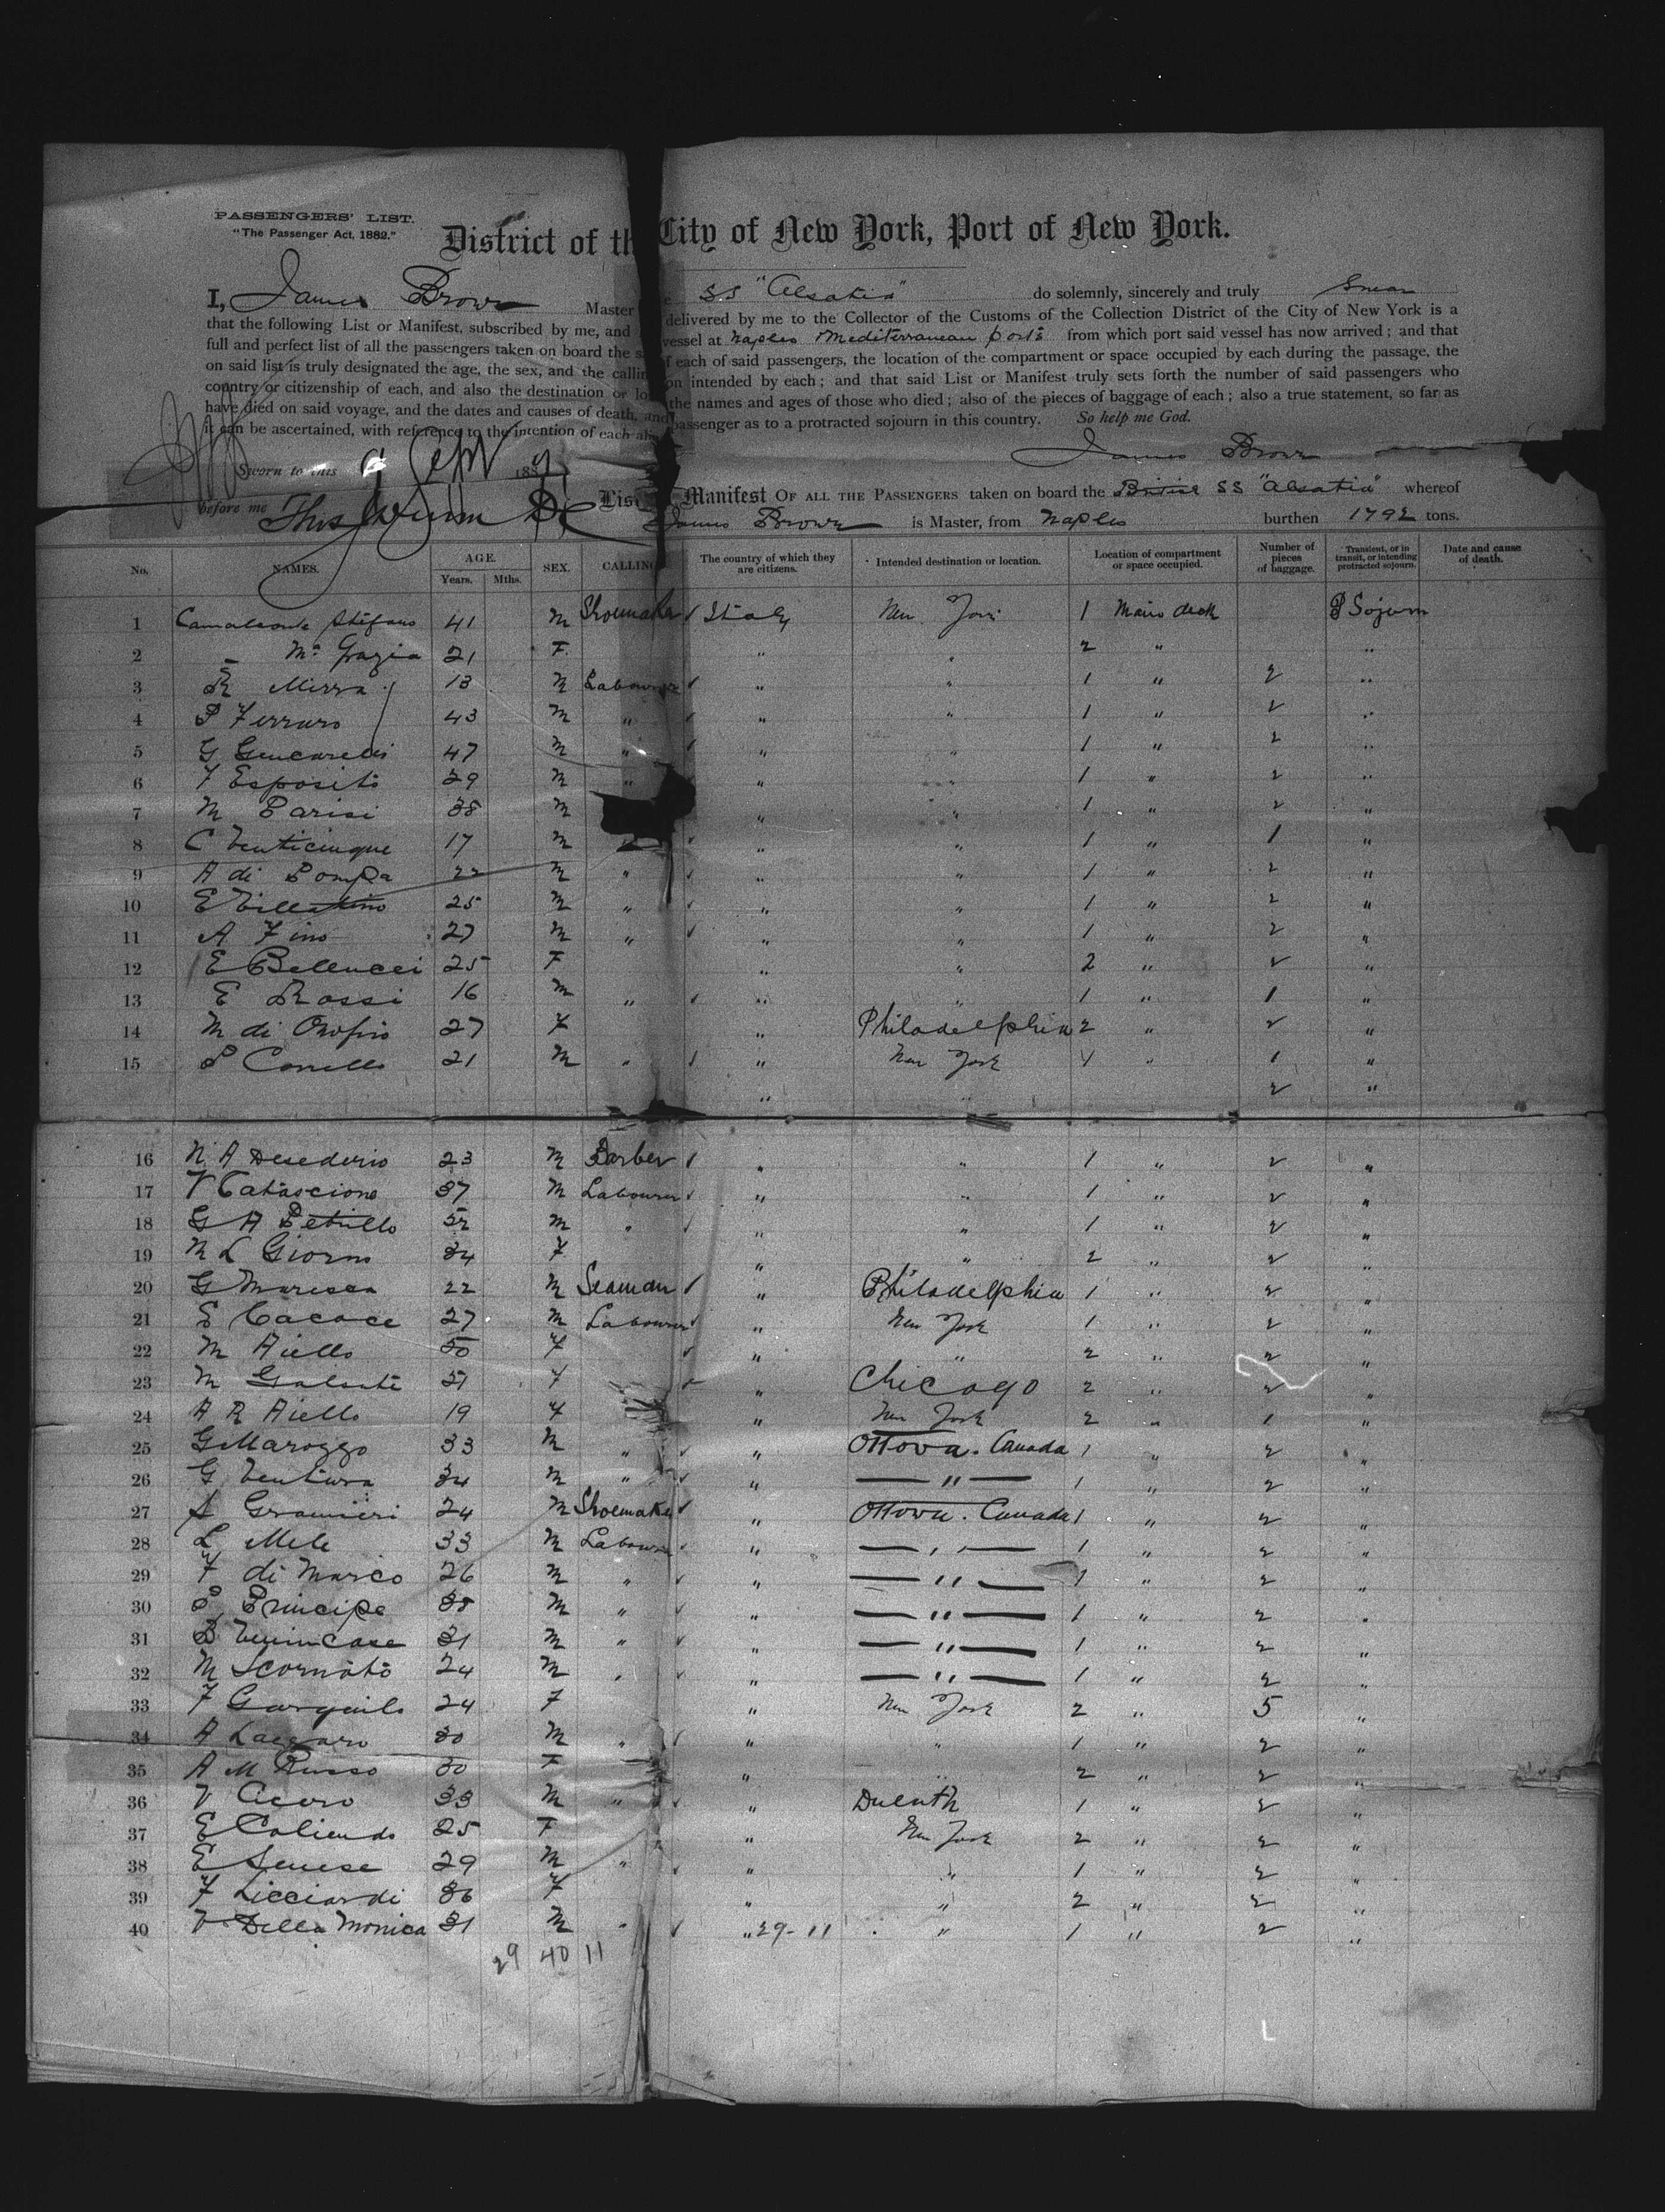 PASSENGERS' LIST.
"The Passenger Act, 1882."
District of th City of New York, Port of New York.
I, James Brown Master SS "Alsatia" do solemnly, sincerely and truly Swear
that the following List or Manifest, subscribed by me, and delivered by me to the Collector of the Customs of the Collection District of the City of New York is a
full and perfect list of all the passengers taken on board the s vessel at Naples Mediterranean ports from which port said vessel has now arrived; and that
on said list is truly designated the age, the sex, and the callin of each of said passengers, the location of the compartment or space occupied by each during the passage, the
country or citizenship of each, and also the destination or lo on intended by each; and that said List or Manifest truly sets forth the number of said passengers who
have died on said voyage, and the dates and causes of death, and the names and ages of those who died; also of the pieces of baggage of each; also a true statement, so far as
it can be ascertained, with reference to the intention of each passenger as to a protracted sojourn in this country. So help me God.
James Brown
Sworn to this 9 Sept 188
before me
List Manifest OF ALL THE PASSENGERS taken on board the British SS "Alsatia" whereof
James Brown is Master, from Naples burthen 1792 tons.
No. NAMES. AGE. Years. Mths. SEX. CALLING The country of which they are citizens. Intended destination or location. Location of compartment or space occupied. Number of pieces of baggage. Transient, or in transit, or intending protracted sojourn. Date and cause of death.
1 Camaleonte Stefano 41 M Shoemaker Italy New York 1 Main deck P Sojurn
2 " Ma Grazia 21 F " " 2 " "
3 R Mirra 13 M Labourer " " 1 " 2 "
4 P Ferraro 43 M " " " 1 " 2 "
5 G Gencarelli 47 M " " " 1 " 2 "
6 F Esposito 29 M " " " 1 " 2 "
7 M Parisi 38 M " " 1 " 2 "
8 C Venticinque 17 M " " " 1 " 1 "
9 A di Pompa 22 M " " " 1 " 2 "
10 E 25 M " " " 1 " 2 "
11 A Fino 27 M " " " 1 " 2 "
12 E Bellucci 25 F " " 2 " 2 "
13 E Rossi 16 M " " " 1 " 1 "
14 M di Onofrio 27 F " Philadelphia 2 " 2 "
15 P 21 M " " New York 4 " 1 "
" " 2 "
16 N A Desederio 23 M Barber " " 1 " 2 "
17 V Catascione 37 M Labourer " " 1 " 2 "
18 G A Petrillo 52 M " " " 1 " 2 "
19 M L Giorno 34 F " " 2 " 2 "
20 G Maresca 22 M Seaman " Philadelphia 1 " 2 "
21 S Cacace 27 M Labourer " New York 1 " 2 "
22 M Aiello 50 F " " 2 " 2 "
23 M 21 F " Chicago 2 " 2 "
24 A R Aiello 19 F " New York 2 " 1 "
25 G Marozzo 33 M " " Ottova. Canada 1 " 2 "
26 G Ventura 34 M " " — " — 1 " 2 "
27 S Gramieri 24 M Shoemaker " Ottowa. Canada 1 " 2 "
28 L Mele 33 M Labourer " — " — 1 " 2 "
29 F di Marco 26 M " " — " — 1 " 2 "
30 P Principe 38 M " " — " — 1 " 2 "
31 B 31 M " " — " — 1 " 2 "
32 M Scornato 24 M " " — " — 1 " 2 "
33 F Gargiulo 24 F " New York 2 " 5 "
34 A Lazzaro 30 M " " " 1 " 2 "
35 A M Russo 30 F " " 2 " 2 "
36 V Cicero 33 M " " Duluth 1 " 2 "
37 E Caliendo 25 F " New York 2 " 2 "
38 E Senese 29 M " " " 1 " 2 "
39 F Licciardi 36 F " " 2 " 2 "
40 V Della Monica 31 M " " 29-11 " 1 " 2 "
29 40 11